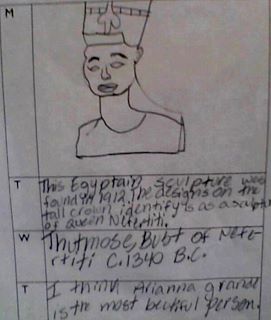 M
T
This Egyptain sculpture was
found in 1912. The designs on the
tall crown identify is as a sculptu
of Queen Nefertiti.
W
Thutmose, Bust of Nefe-
rtiti C. 1340 B.C.
T
I think Arianna grande
is the most beutiful person.